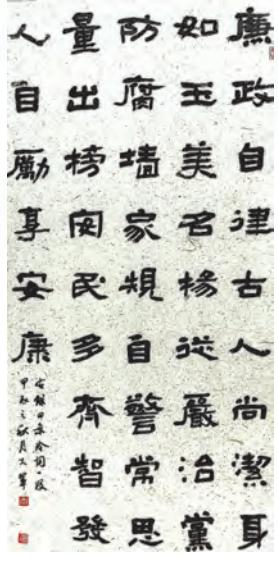 廉政自律古人尚潔身
如玉美名楊從嚴治黨
防腐墻家規自警常思
量出榜安民多齊智發
人自勵享安康